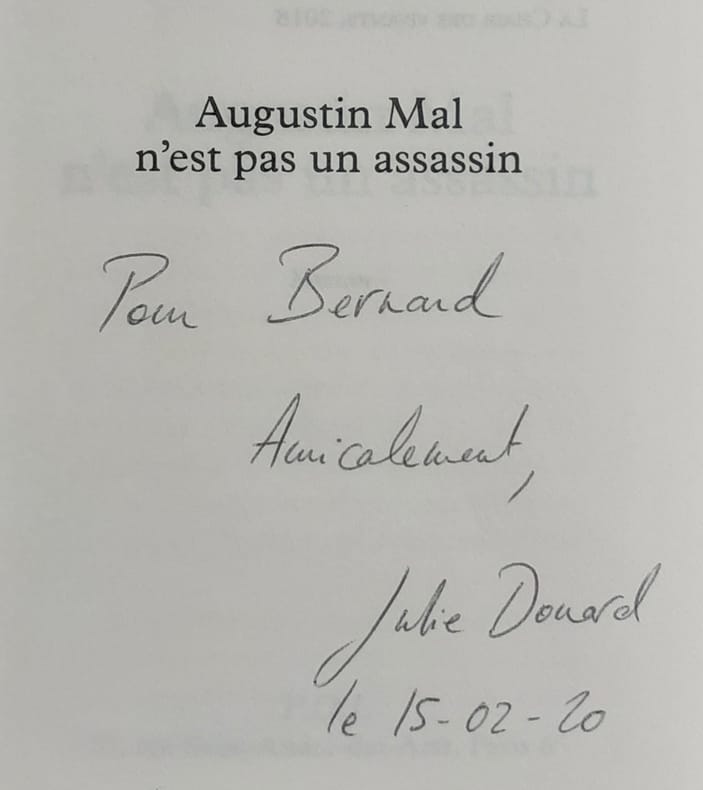 Augustin Mal
n'est pas un assassin
Pour Bernard
Amicalement,
Julie Douard
le 15-02-20